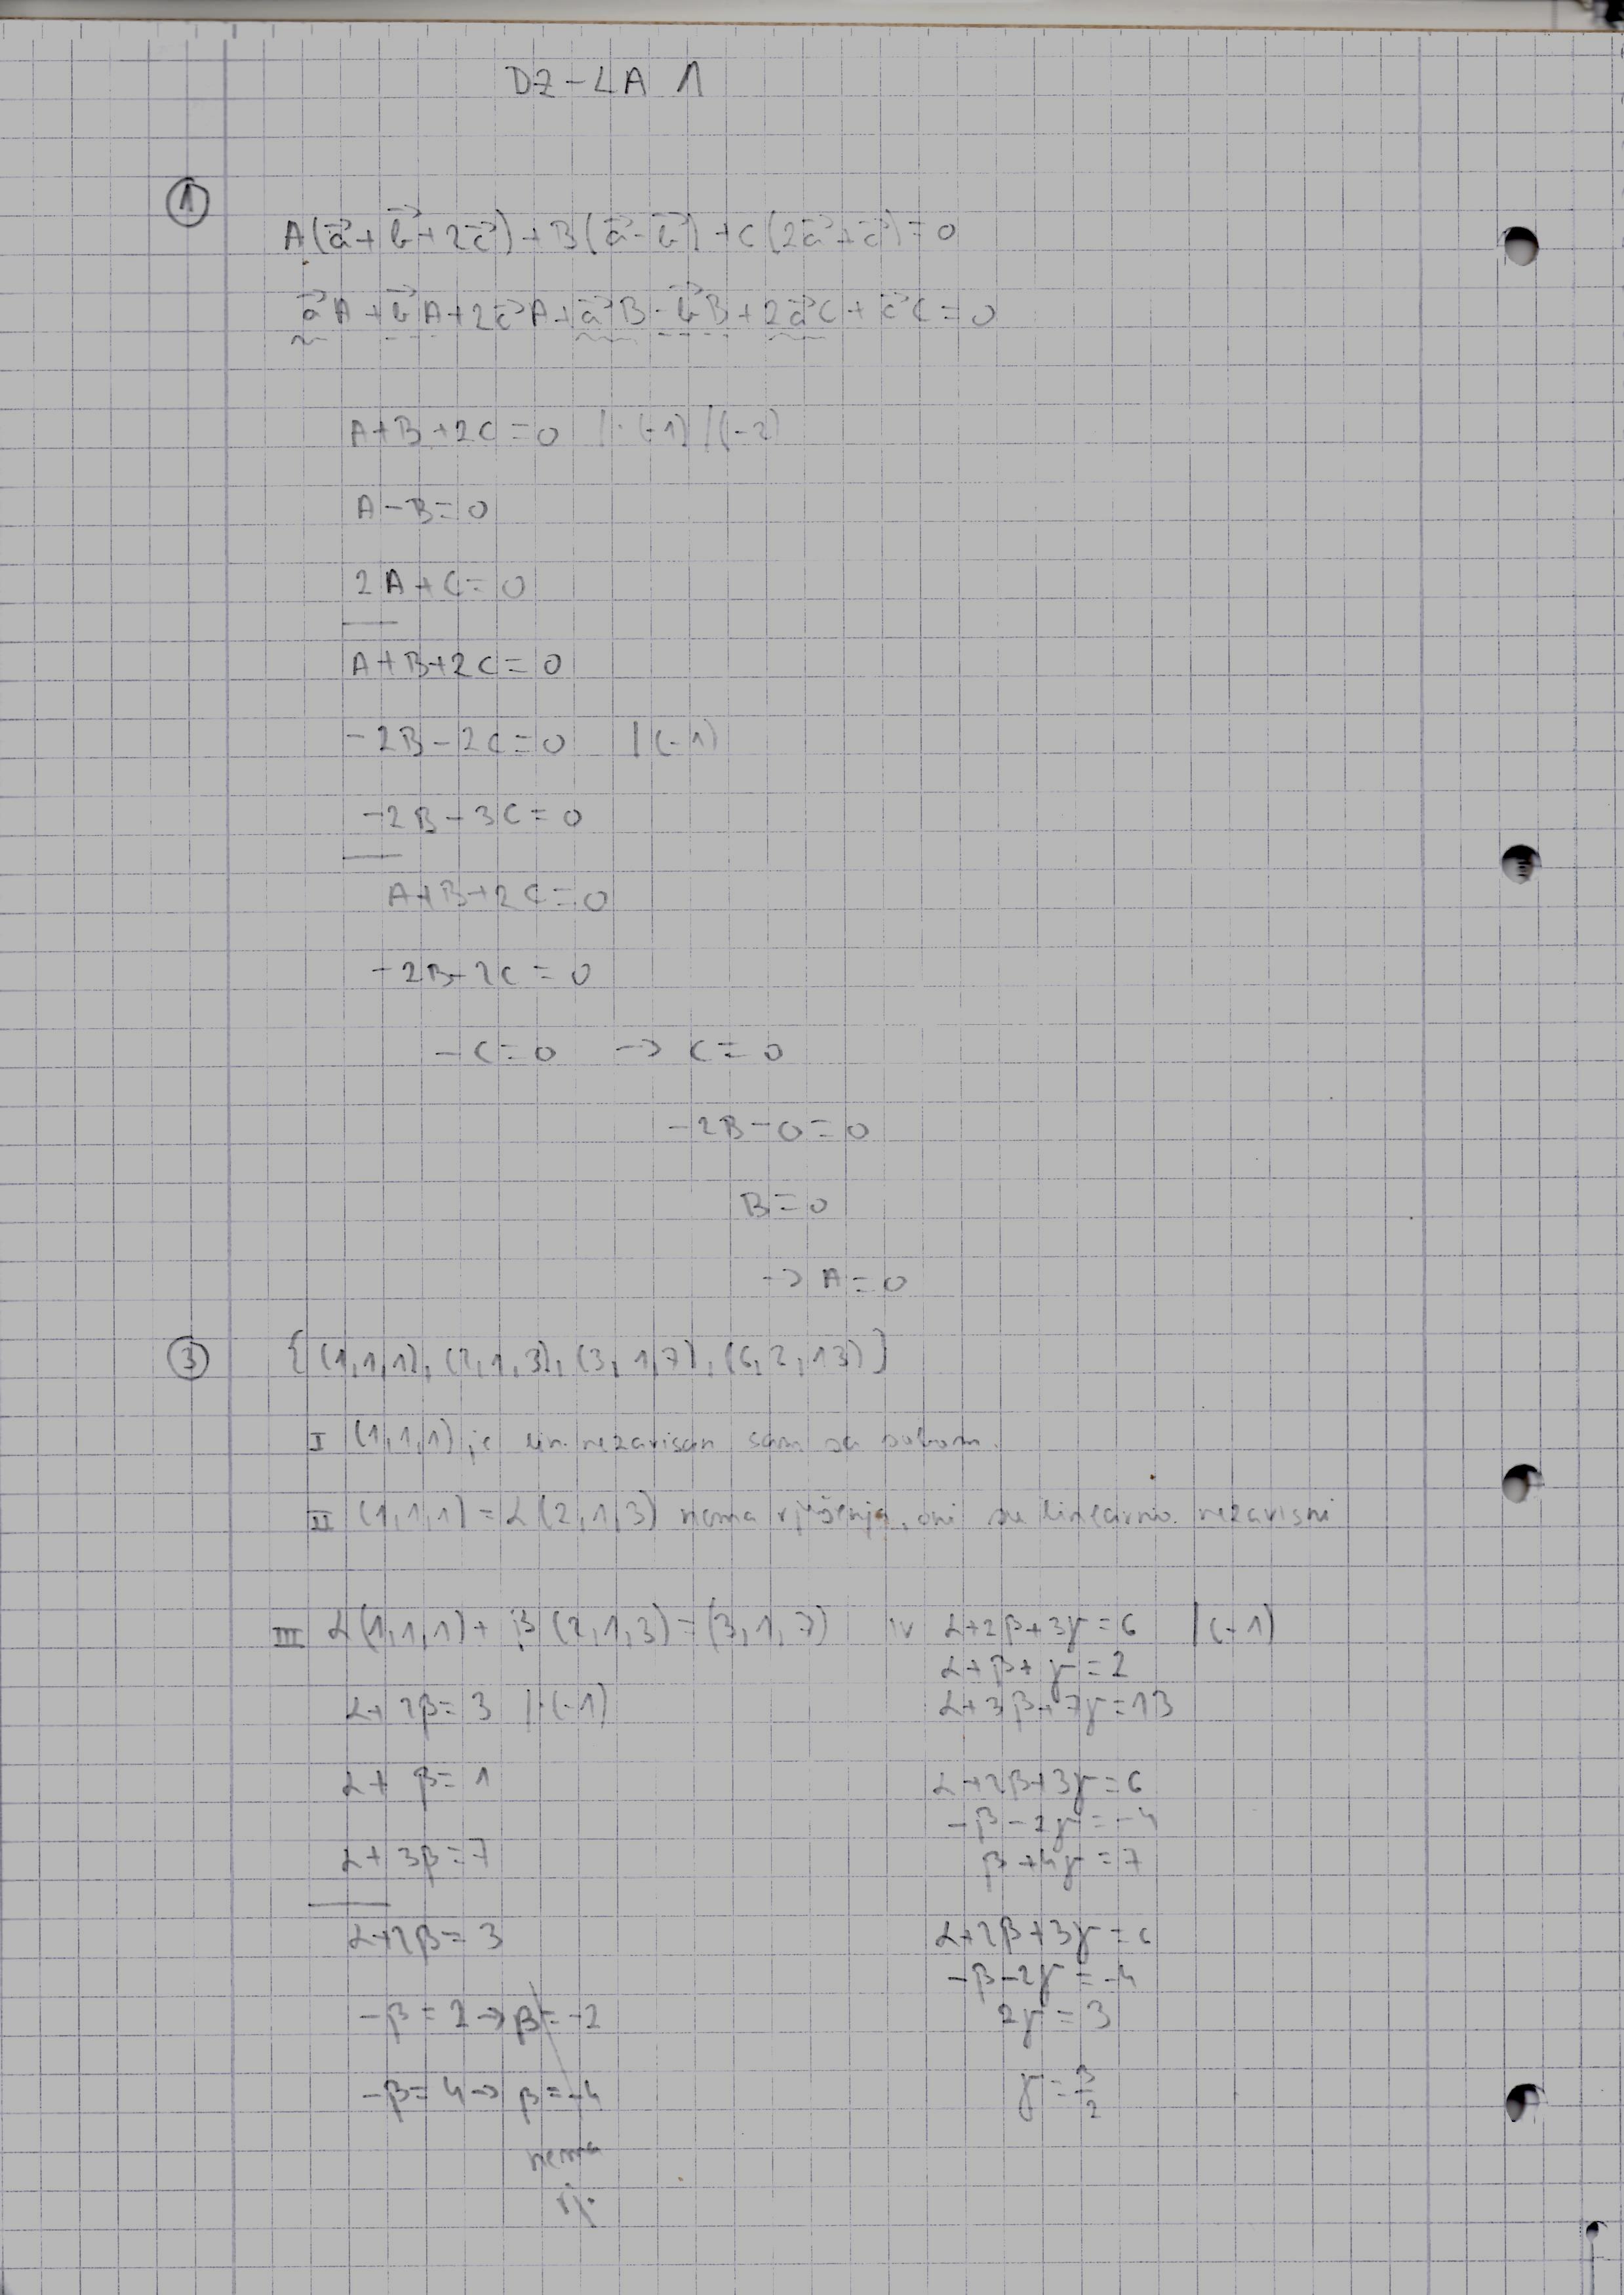 DZ-LA 1
①
A(a⃗+b⃗+2c⃗)+B(a⃗-b⃗)+C(2a⃗+c⃗)=0
a⃗A+b⃗A+2c⃗A+a⃗B-b⃗B+2a⃗C+c⃗C=0
A+B+2C=0 /·(-1) /(-2)
A-B=0
2A+C=0
A+B+2C=0
-2B-2C=0 /(-1)
-2B-3C=0
A+B+2C=0
-2B-2C=0
-C=0 → C=0
-2B-0=0
B=0
→ A=0
③ {(1,1,1),(2,1,3),(3,1,7),(6,2,13)}
I (1,1,1) je lin. nezavisan sam sa sobom.
II (1,1,1)=α(2,1,3) nema rješenja, oni su linearno nezavisni
III α(1,1,1)+β(2,1,3)=(3,1,7)
α+2β=3 /·(-1)
α+β=1
α+3β=7
α+2β=3
-β=2→β=-2
-β=4→β=-4
nema
rj.
IV α+2β+3γ=6 /(-1)
α+β+γ=2
α+3β+7γ=13
α+2β+3γ=6
-β-2γ=-4
β+4γ=7
α+2β+3γ=6
-β-2γ=-4
2γ=3
γ=3/2